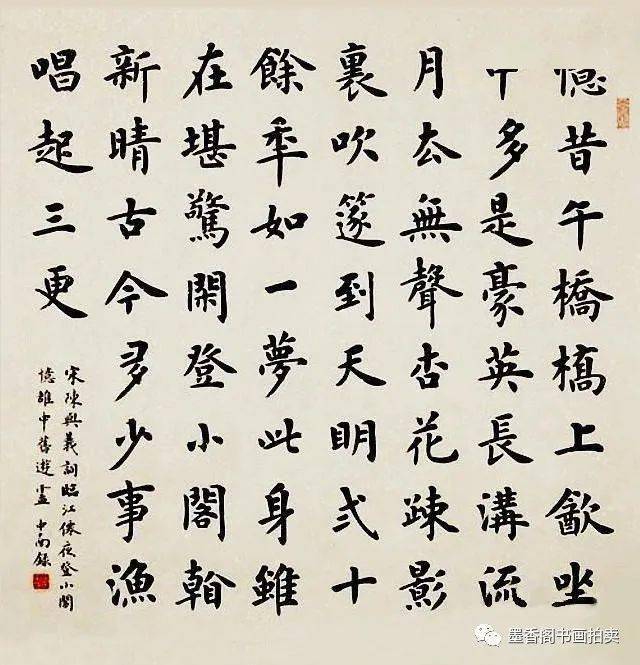 憶昔午橋橋上㱃坐
中多是豪英長溝流
月去無聲杏花疎影
裏吹篴到天明弍十
餘秊如一夢此身雖
在堪驚閑登小閣看
新晴古今多少事漁
唱起三更
宋陳與義詞臨江僊夜登小閣
憶雒中舊遊 錄
墨香阁书画拍卖